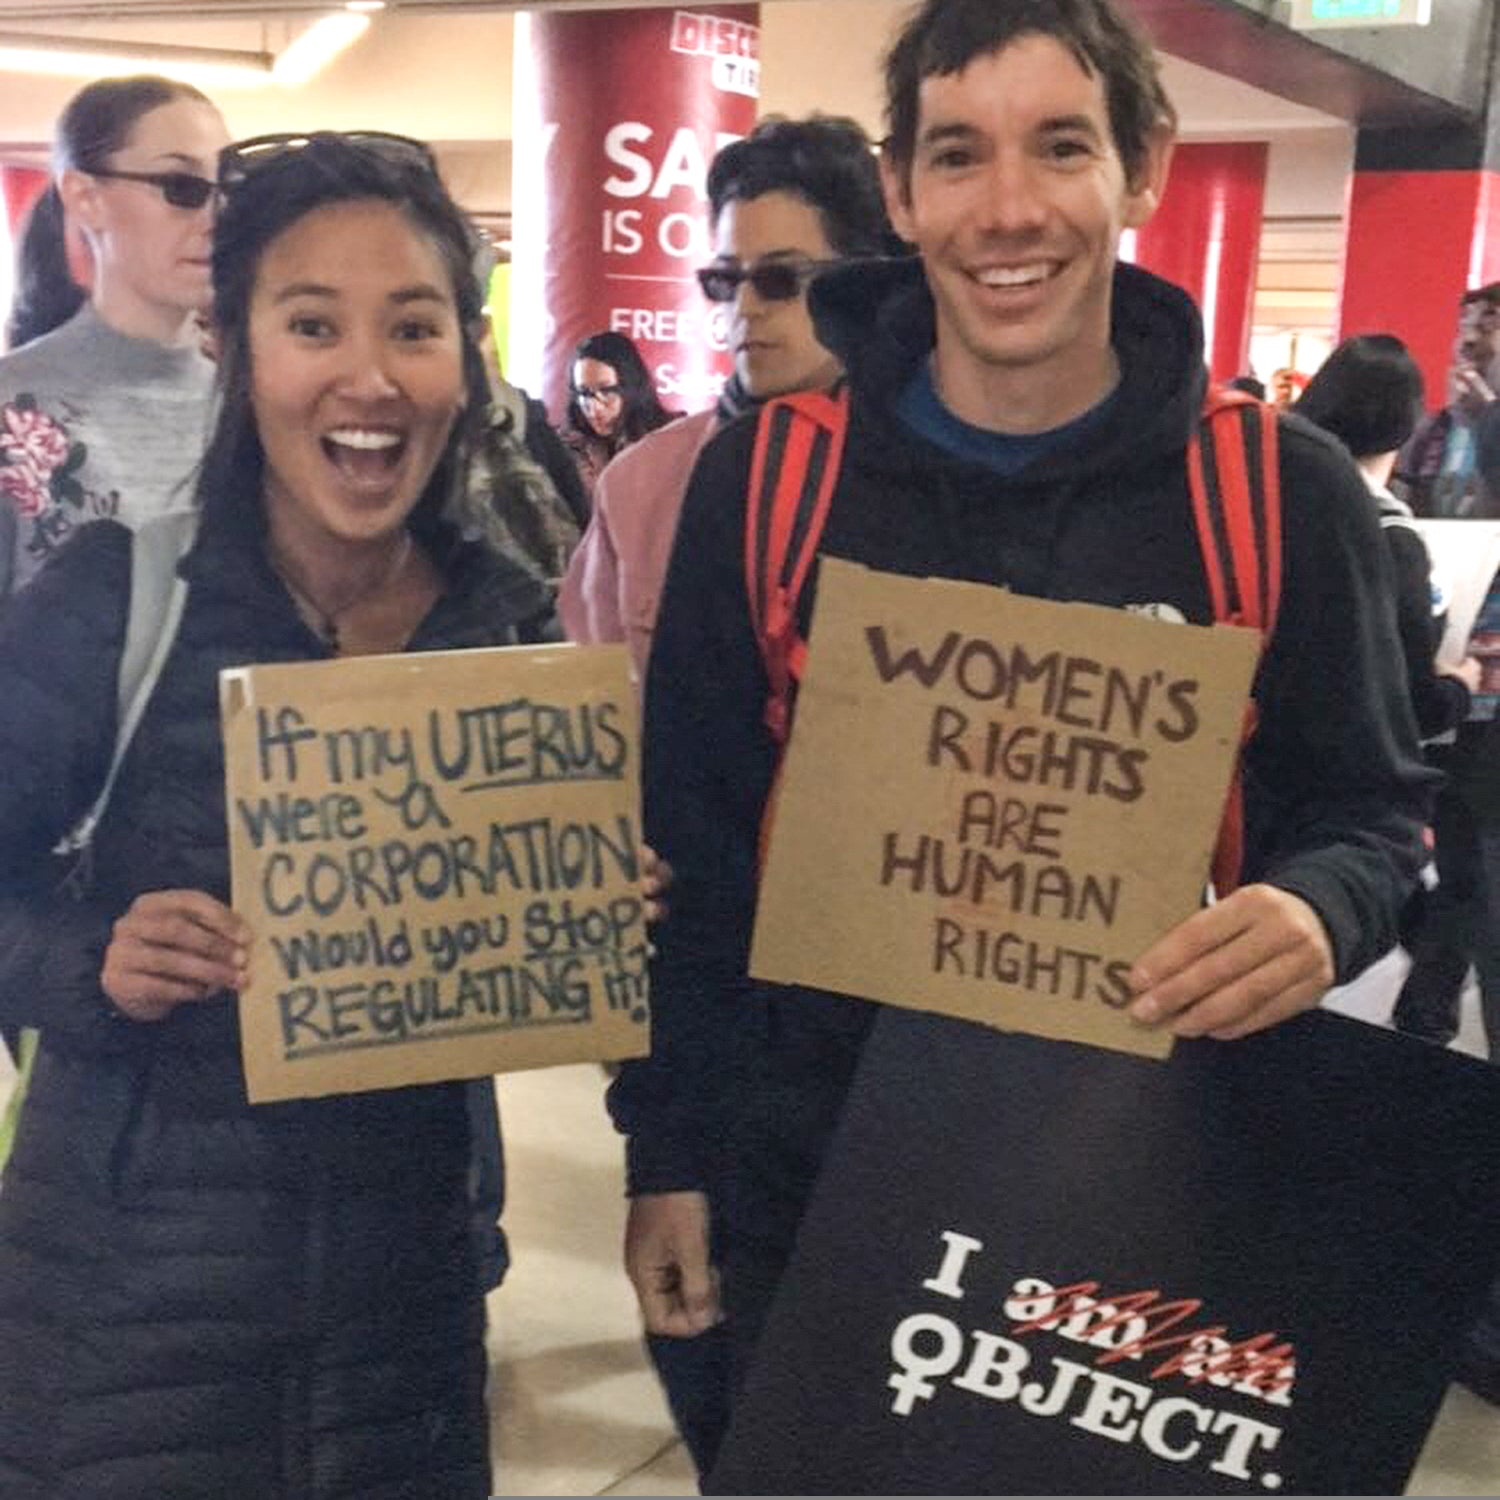 SA
IS O
FREE
If my UTERUS
were a
CORPORATION
would you Stop
REGULATING it?!
THE
WOMEN'S
RIGHTS
ARE
HUMAN
RIGHTS
I am an
OBJECT.